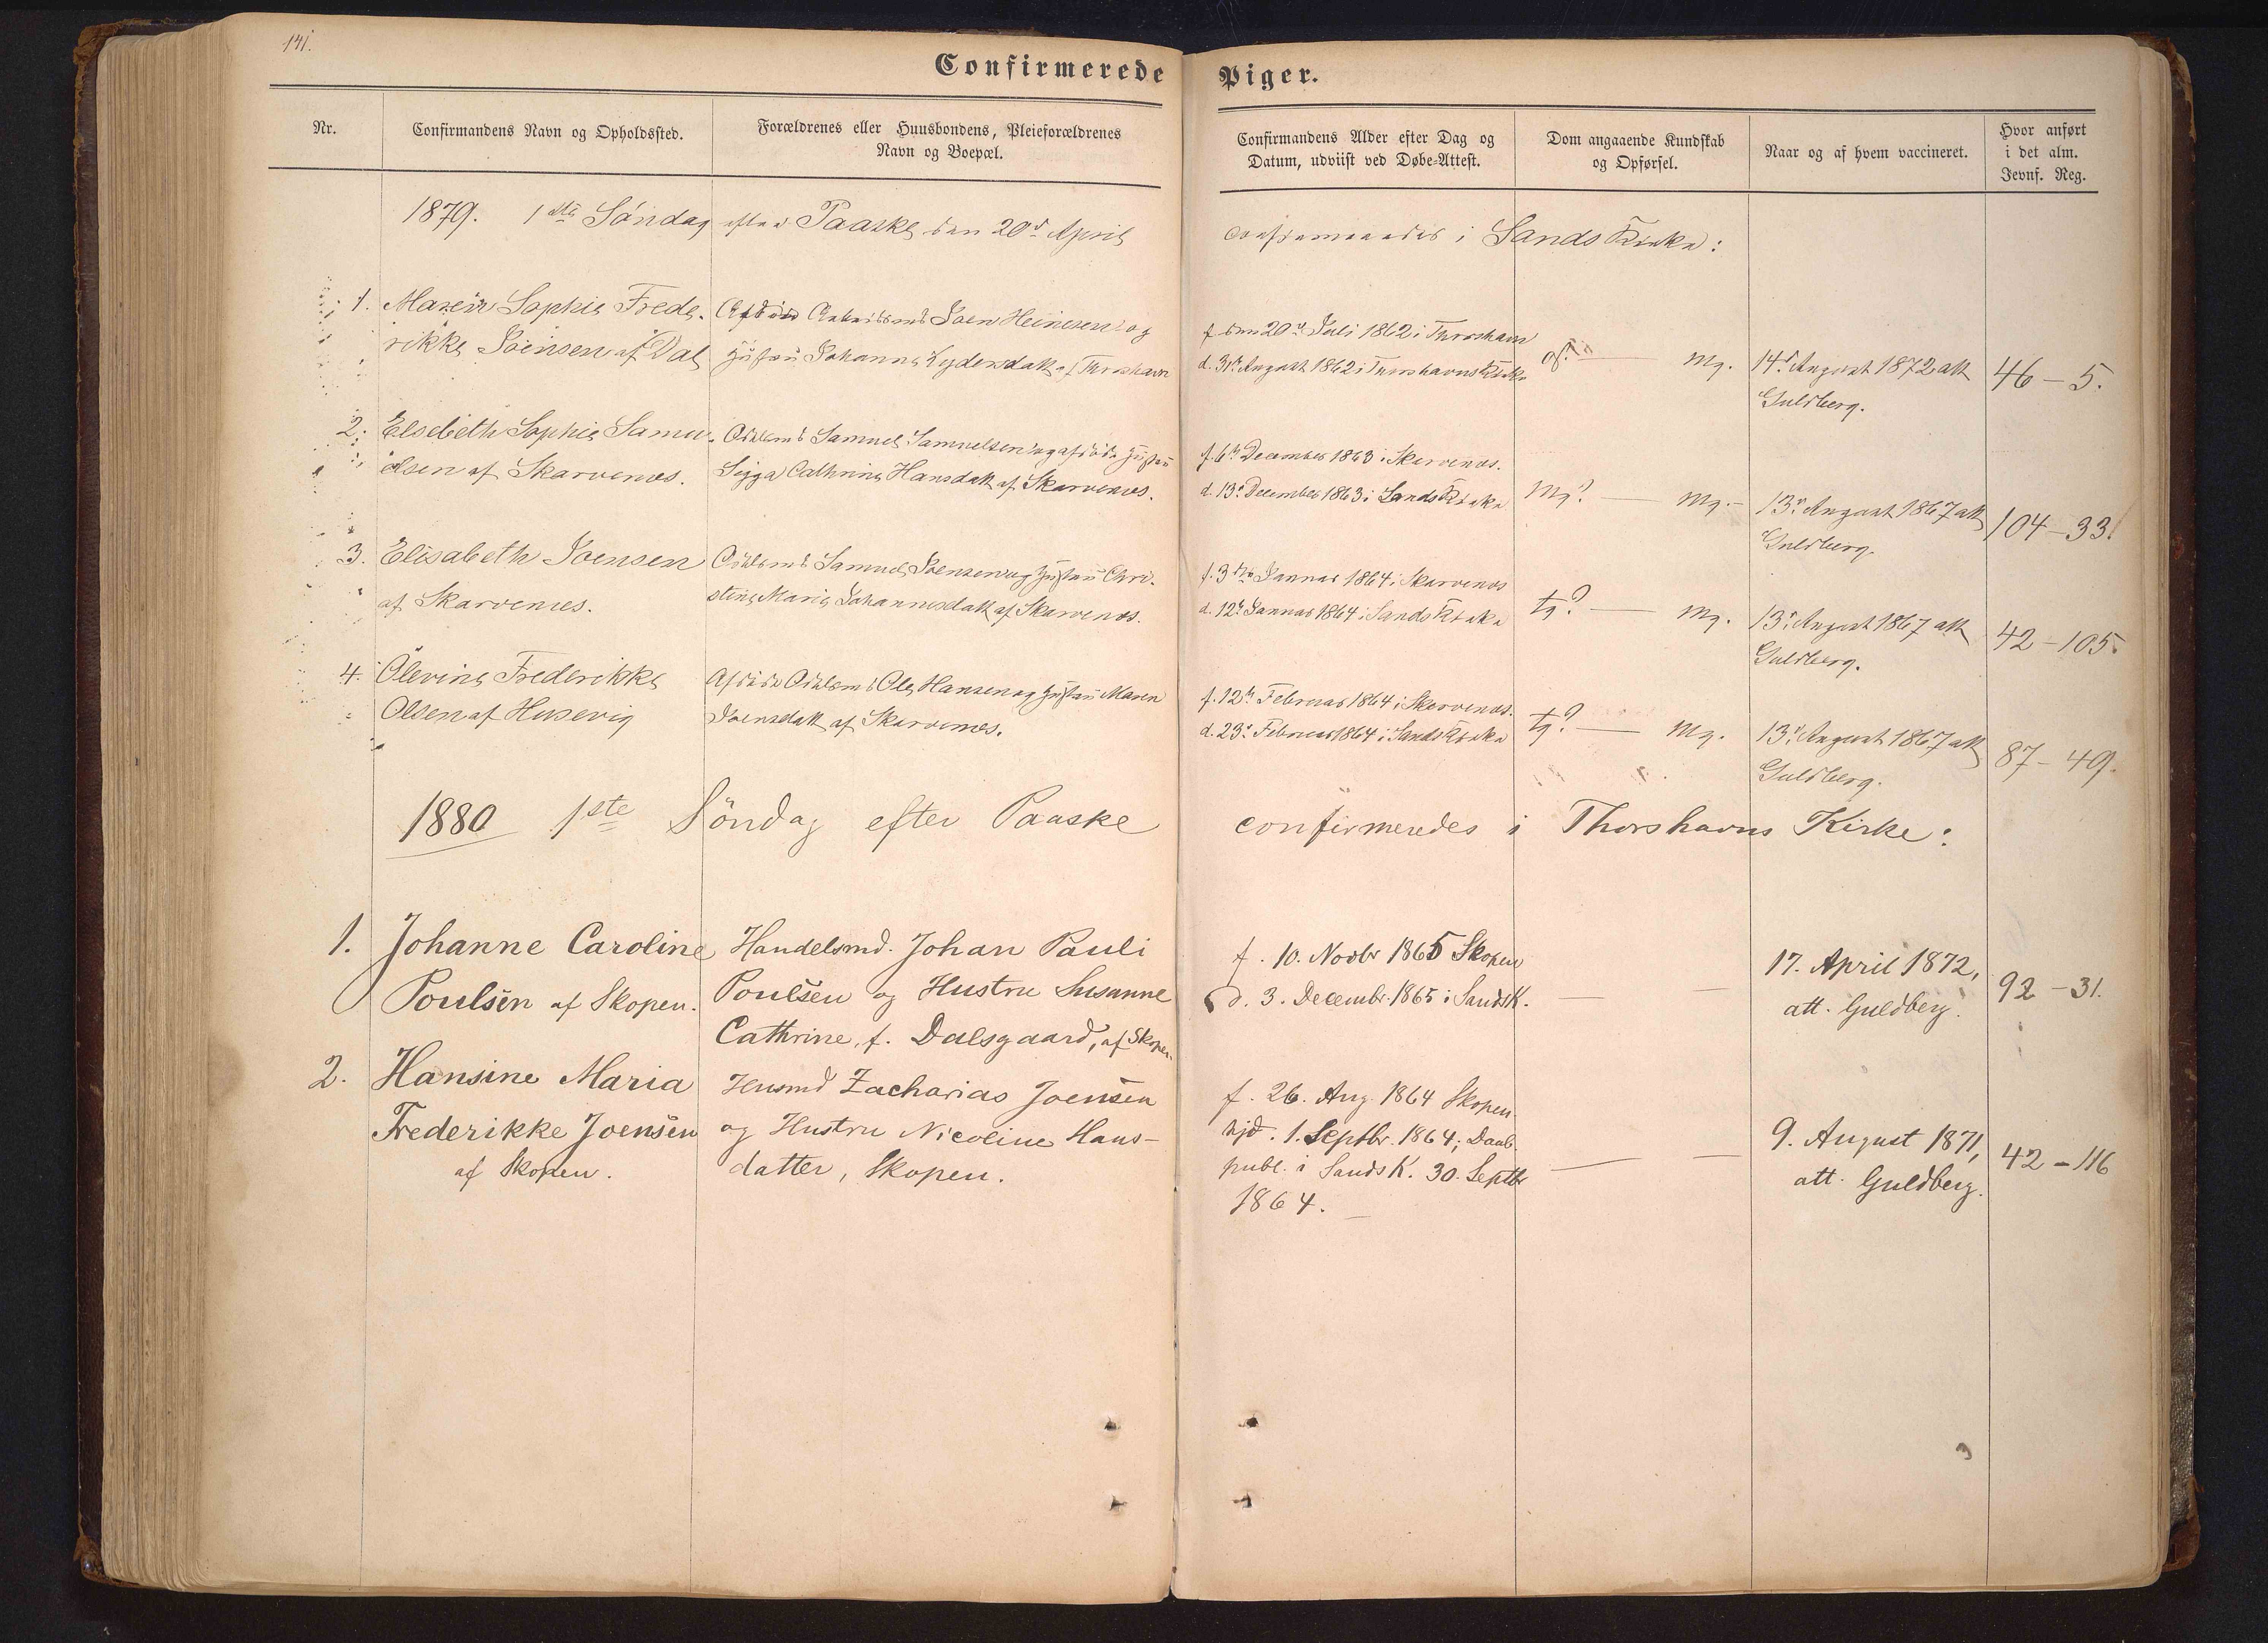 141.
Confirmerede Piger.
Nr.
Confirmandens Navn og Opholdssted.
Forældrenes eller Huusbondens, Pleieforældrenes
Navn og Boepæl.
Confirmandens Alder efter Dag og
Datum, udviist ved Døbe-Attest.
Dom angaaende Kundskab
og Opførsel.
Naar og af hvem vaccineret.
Hvor anført
i det alm.
Jevnf. Reg.
1879. 1ste Söndag efter Paaske den 20de April confirmeredes i Sands Kirke:
1.
Maren Sophie Frede-
rikke Joensen af Dal
Afdöde Arbeidsmd Joen Heinesen og
Hustru Johanne Lydersdatt. af Thorshavn
f. den 20de Juli 1862 i Thorshavn
d. 31te August 1862 i Thorshavns Kirke
gf. — mg.
14de August 1872 att
Guldberg.
46 – 5.
2.
Elsebeth Sophie Samu-
elsen af Skarvenæs.
Odelsmd Samuel Samuelsen og afdöde Hustru
Sigga Cathrine Hansdatt. af Skarvenæs.
f. 6te December 1863 i Skarvenæs.
d. 13de December 1863 i Sands Kirke
Mg? — mg.
13de August 1867 att
Guldberg.
104 – 33.
3.
Elisabeth Joensen
af Skarvenæs.
Odelsmd Samuel Joensen og Hustru Chri-
stine Marie Johannesdatt af Skarvenæs.
f. 3die Januar 1864 i Skarvenæs
d. 12te Januar 1864 i Sands Kirke
tg? — mg.
13de August 1867 att
Guldberg.
42 – 105.
4.
Olevine Frederikke
Olsen af Husevig
Afdöde Odelsmd Ole Hansen og Hustru Maren
Joensdatt af Skarvenæs.
f. 12te Februar 1864 i Skarvenæs.
d. 23de Februar 1864 i Sands Kirke
tg? — mg.
13de August 1867 att
Guldberg.
87 – 49.
1880 1ste Söndag efter Paaske confirmeredes i Thorshavns Kirke:
1.
Johanne Caroline
Poulsen af Skopen.
Handelsmd. Johan Pauli
Poulsen og Hustru Susanne
Cathrine, f. Dalsgaard, af Skopen.
f. 10. Novbr 1865 Skopen
d. 3. Decembr. 1865 i Sands K.
— —
17. April 1872,
att. Guldberg.
92 – 31.
2.
Hansine Maria
Frederikke Joensen
af Skopen.
Husmd Zacharias Joensen
og Hustru Nicoline Hans-
datter, Skopen.
f. 26. Aug. 1864 Skopen.
hjd. 1. Septbr. 1864; Daab
publ. i Sands K. 30. Septbr
1864. —
— —
9. August 1871,
att. Guldberg.
42 – 116